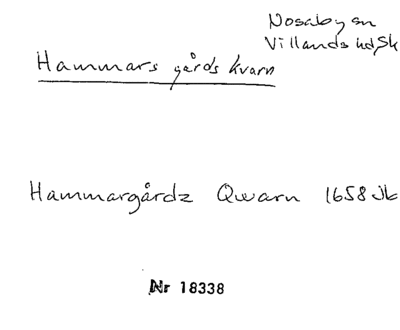 Nosaby sn
Villands hd, Sk
Hammars gårds kvarn
Hammargårdz Qwarn 1658 Jb
Nr 18338